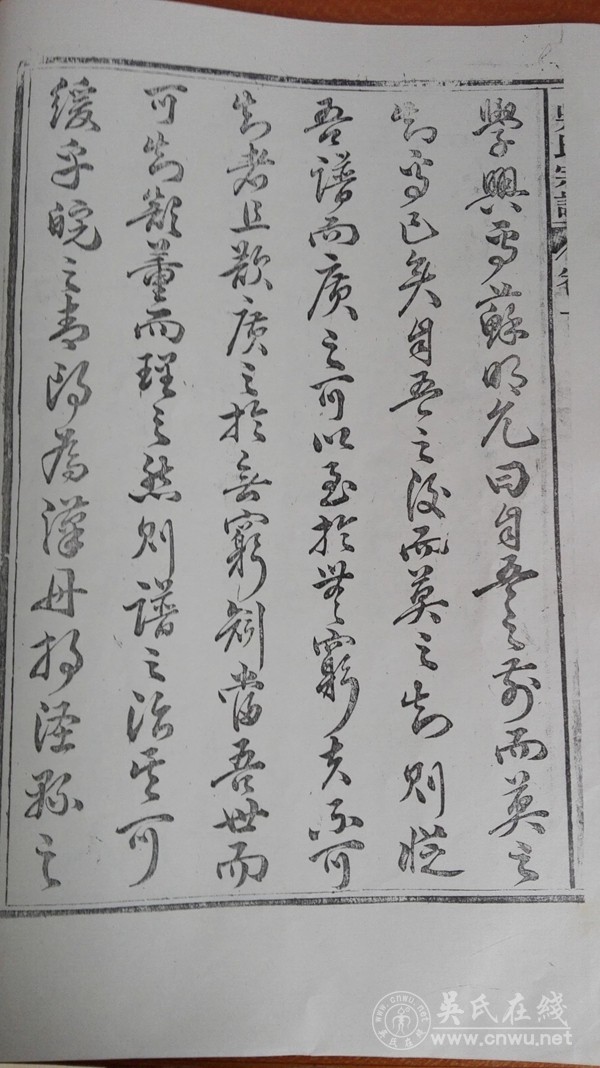 吳氏宗譜
學興焉蘇明允曰自吾之前而莫之
知焉已矣自吾之後而莫之知則從
吾譜而廣之可以至於無窮夫不可
知者且欲廣之於無窮矧當吾世而
可知董而理之然則譜之治其可
緩乎皖之青陽為漢丹揚涇縣之
吳氏在线
www.cnwu.net